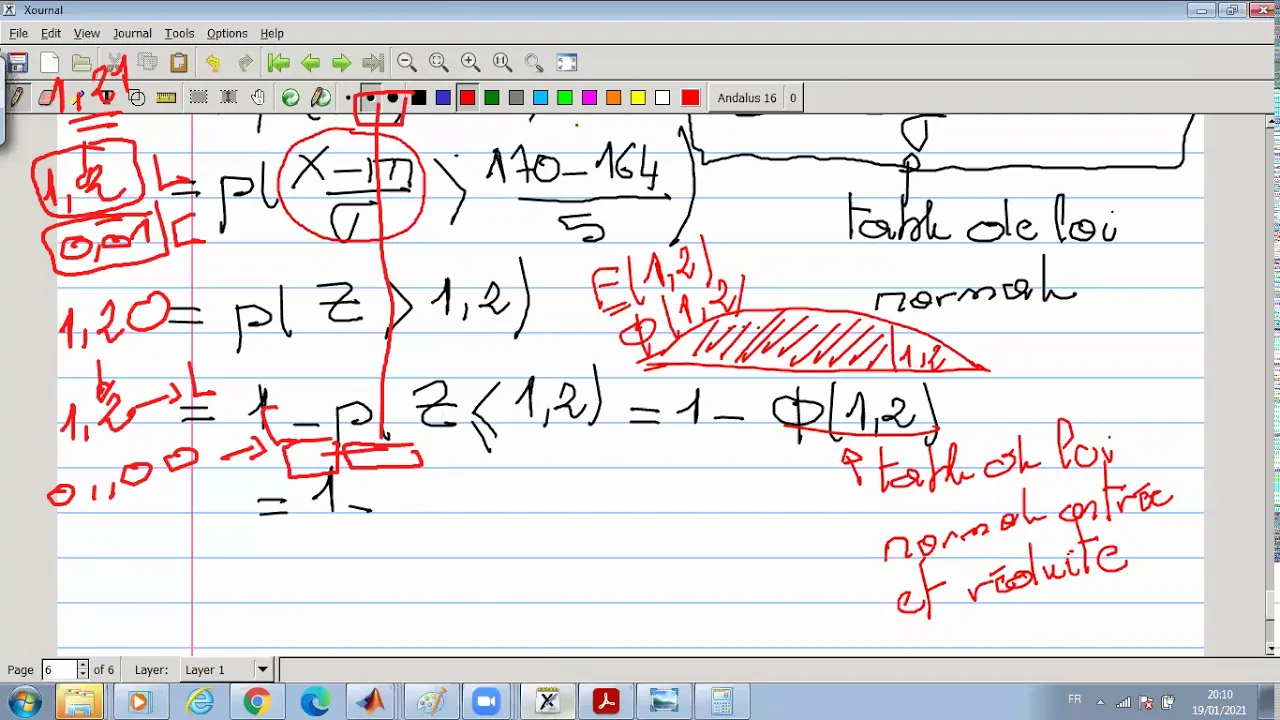 Xournal
File Edit View Journal Tools Options Help
Andalus 16 0
1,21
1,2 L
0,01 C
1,20
1,2 → L
0,00 →
= p( X-m / σ > 170-164 / 5 )
= p( Z > 1,2)
= 1 - p( Z ≤ 1,2) = 1 - Φ(1,2)
= 1 -
F(1,2)
Φ(1,2)
1,2
σ
table de loi
normale
table de loi
normale centrée
et réduite
Page 6 of 6 Layer: Layer 1
FR 20:10
19/01/2021